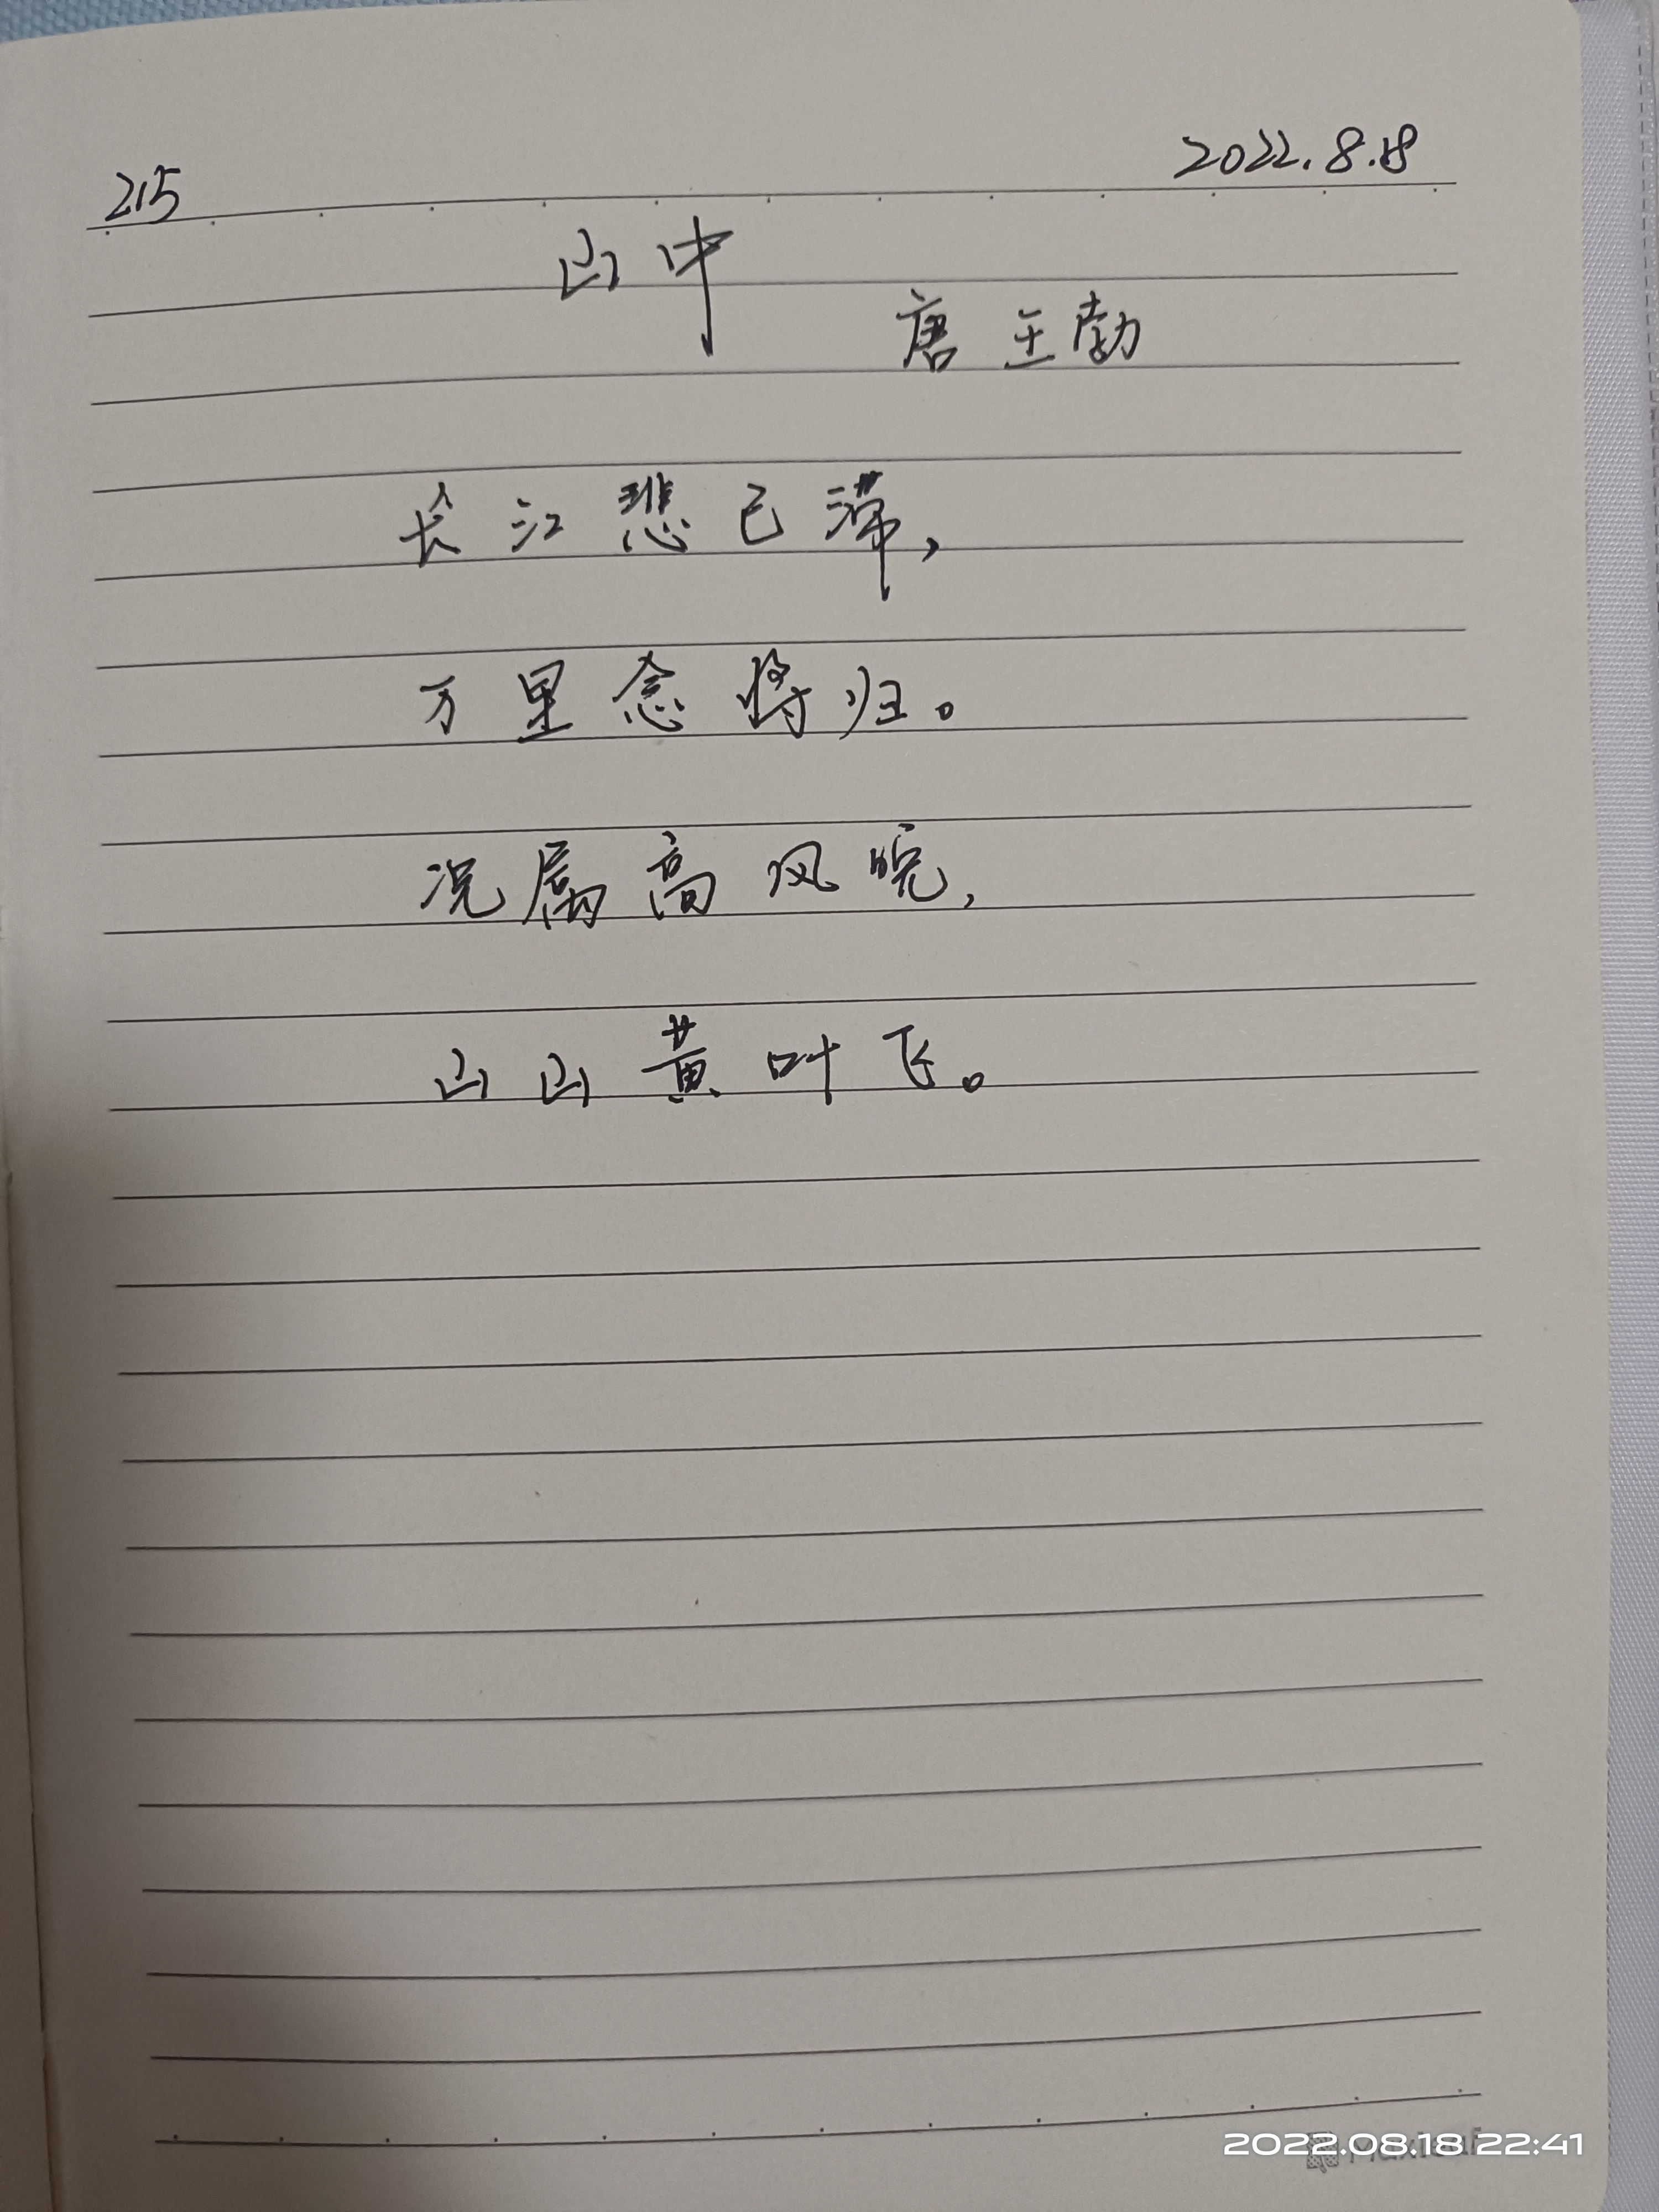 215
2022.8.18
山中
唐 王勃
长江悲已滞,
万里念将归。
况属高风晚,
山山黄叶飞。
2022.08.18 22:41